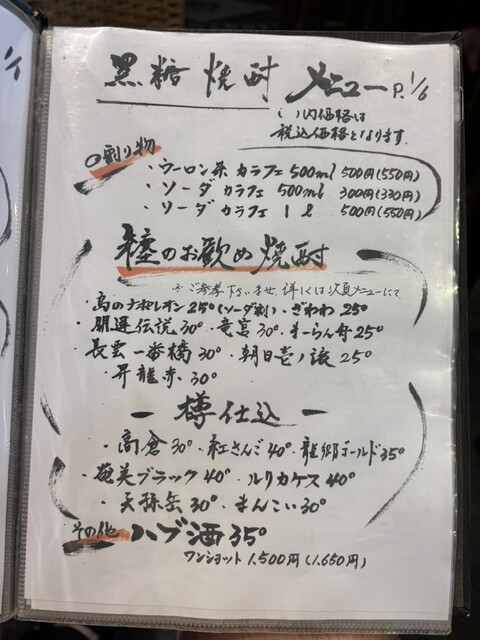 黒糖焼酎 メニュー P.1/6
( )内価格は
税込価格となります.
○割り物
・ウーロン茶 カラフェ 500ml 500円(550円)
・ソーダ カラフェ 500ml 300円(330円)
・ソーダ カラフェ 1ℓ 500円(550円)
のお飲め焼酎
※ご参考下さいませ 詳しくは次頁メニューにて
・島のナポレオン 25°(ソーダ割)・ざわわ 25°
・開運伝説 30°・竜宮 30°・まーらん舟 25°
・長雲一番橋 30°・朝日壱ノ譲 25°
・昇龍赤 30°
ー 樽仕込 ー
・高倉 30°・紅さんご 40°・龍郷ゴールド 35°
・奄美ブラック 40°・ルリカケス 40°
・天孫岳 30°・まんこい 30°
その他 ハブ酒 35°
ワンショット 1,500円(1,650円)